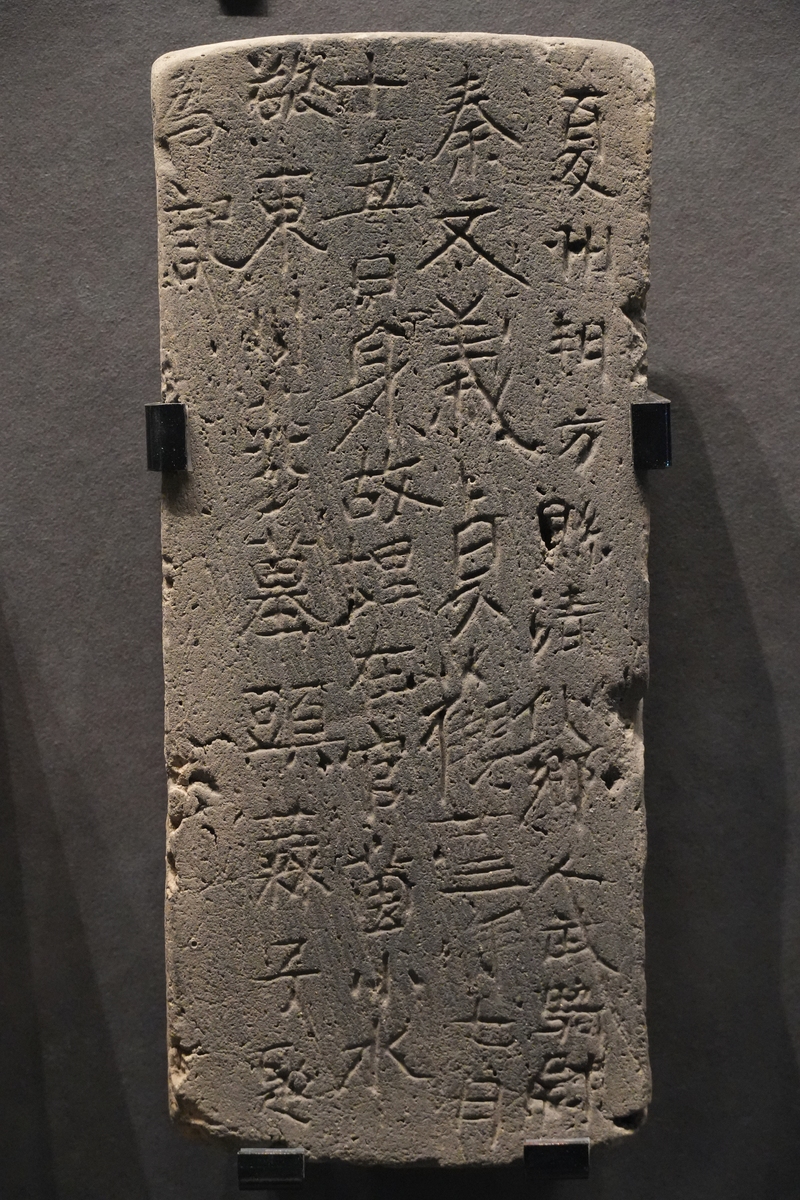 夏州朔方縣清化鄉人武騎尉
秦文義貞觀三年七月
十五日身故埋在官菌小水
東墓頭子
為記